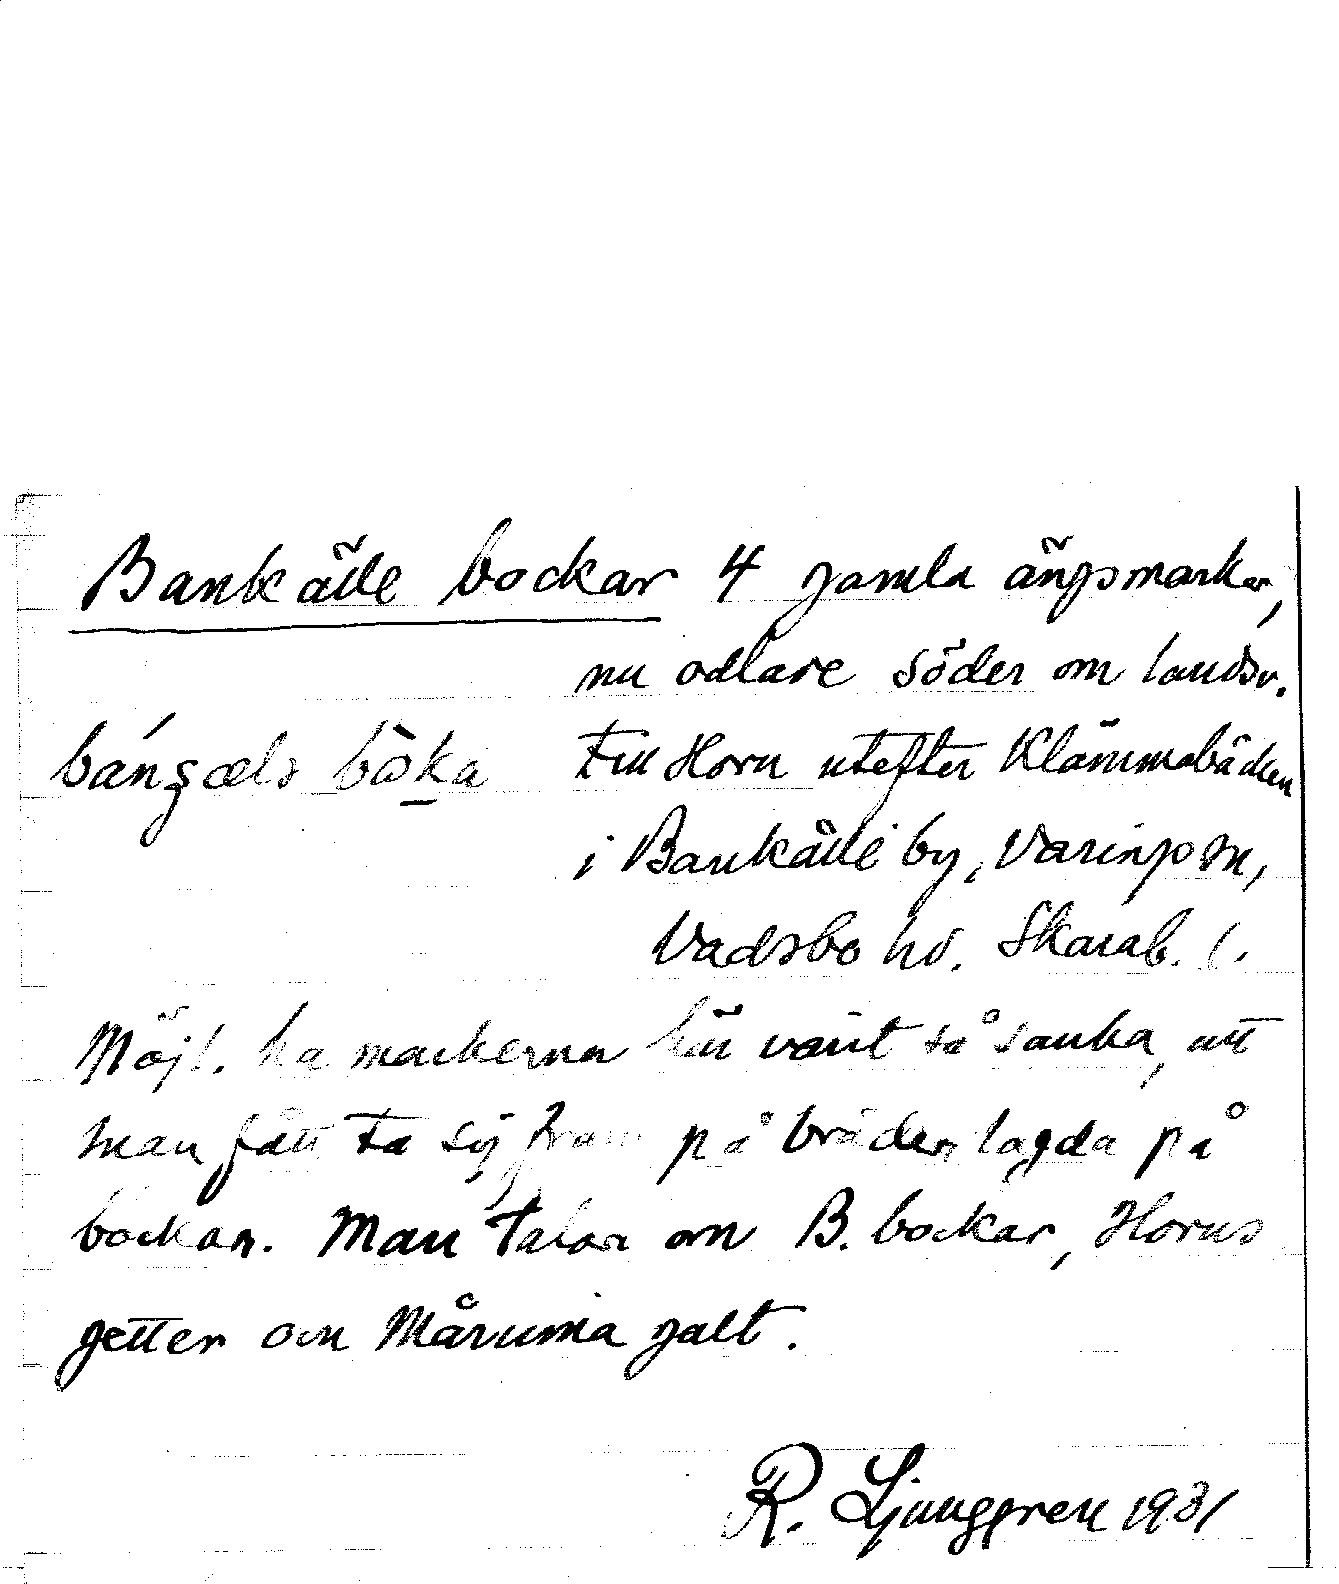 Bankälle bockar 4 gamla ängsmarker,
nu odlare söder om landsv.
bángæls bòka till Horn utefter Klämmabäcken
i Bankälle by, Varings sn,
Vadsbo hd. Skarab. l.
Möjl. ha markerna här varit så sanka, att
man fått ta sig fram på bräder, lagda på
bockar. Man talar om B. bockar, Horns
getter och Måruma galt.
R. Ljunggren 1931